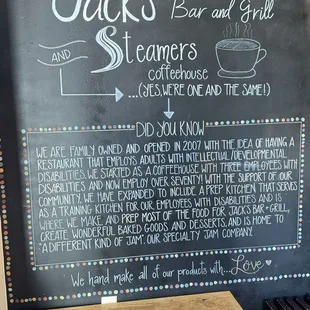 Jacks Bar and Grill
AND
Steamers
coffeehouse
...(YES, WERE ONE AND THE SAME!)
DID YOU KNOW
WE ARE FAMILY OWNED AND OPENED IN 2007 WITH THE IDEA OF HAVING A
RESTAURANT THAT EMPLOYS ADULTS WITH INTELLECTUAL/DEVELOPMENTAL
DISABILITIES. WE STARTED AS A COFFEEHOUSE WITH THREE EMPLOYEES WITH
DISABILITIES AND NOW EMPLOY OVER SEVENTY WITH THE SUPPORT OF OUR
COMMUNITY. WE HAVE EXPANDED TO INCLUDE A PREP KITCHEN THAT SERVES
AS A TRAINING KITCHEN FOR OUR EMPLOYEES WITH DISABILITIES AND IS
WHERE WE MAKE AND PREP MOST OF THE FOOD FOR JACKS BAR + GRILL,
CREATE WONDERFUL BAKED GOODS AND DESSERTS, AND IS HOME TO
"A DIFFERENT KIND OF JAM", OUR SPECIALTY JAM COMPANY.
We hand make all of our products with... Love